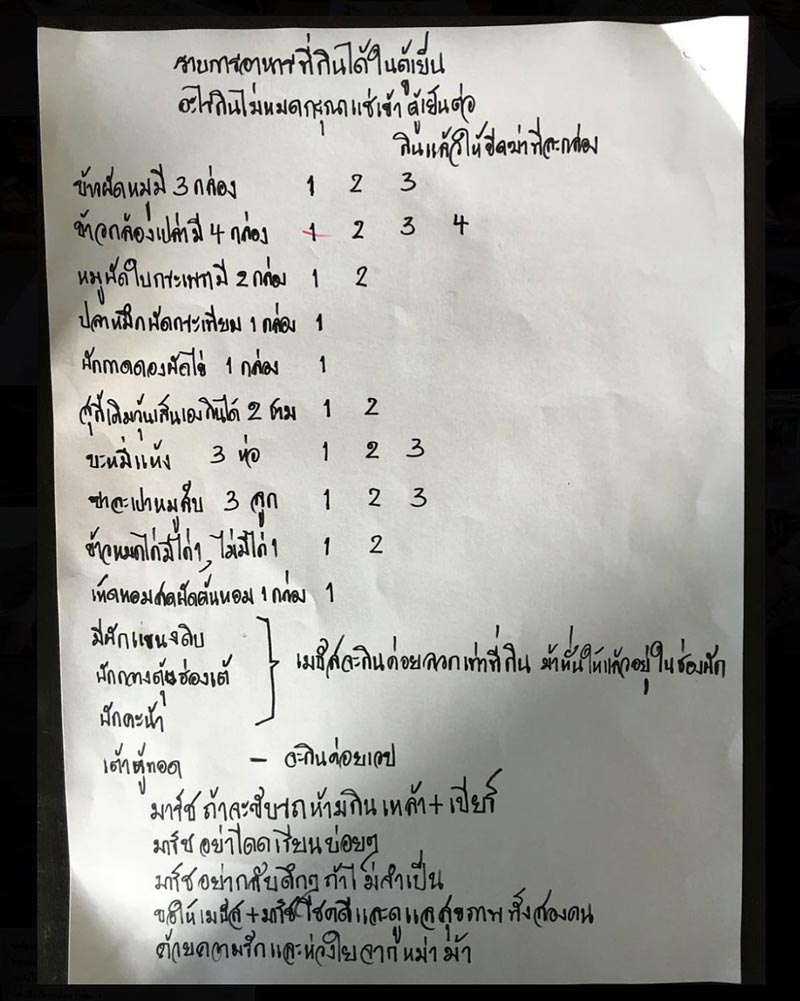 รายการอาหารที่กินได้ในตู้เย็น
อะไรกินไม่หมดกรุณาแช่เข้าตู้เย็นต่อ
กินแล้วให้ขีดฆ่าทีละกล่อง
ข้าวผัดหมูมี 3 กล่อง 1 2 3
ข้าวกล้องเปล่ามี 4 กล่อง 1 2 3 4
หมูผัดใบกระเพามี 2 กล่อง 1 2
ปลาหมึกผัดกระเทียม 1 กล่อง 1
ผักกาดดองผัดไข่ 1 กล่อง 1
สุกี้เติมวุ้นเส้นเองกินได้ 2 ชาม 1 2
บะหมี่แห้ง 3 ห่อ 1 2 3
ซาละเปาหมูสับ 3 ลูก 1 2 3
ข้าวหมกไก่มีไก่ 1, ไม่มีไก่ 1 1 2
เห็ดหอมสดผัดต้นหอม 1 กล่อง 1
มีผักแขนงดิบ
ผักกวางตุ้งฮ่องเต้
ผักคะน้า
เมธัสจะกินค่อยลวกเท่าที่กิน ม้าหั่นให้แล้วอยู่ในช่องผัก
เต้าหู้ทอด – จะกินค่อยเวป
มาร์ช ถ้าจะขับรถห้ามกินเหล้า + เบียร์
มาร์ช อย่าโดดเรียนบ่อยๆ
มาร์ช อย่ากลับดึกๆ ถ้าไม่จำเป็น
ขอให้เมธัส + มาร์ช โชคดีและดูแลสุขภาพทั้งสองคน
ด้วยความรักและห่วงใยจากหม่าม้า